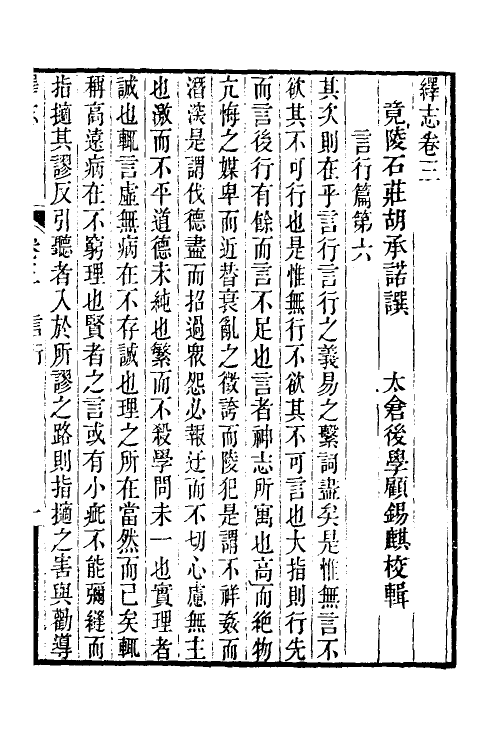 繹志卷三
竟陵石莊胡承諾譔　太倉後學顧錫麒校輯
言行篇第六
其次則在乎言行言行之義易之繫詞盡矣是惟無言不
欲其不可行也是惟無行不欲其不可言也大指則行先
而言後行有餘而言不足也言者神志所寓也高而絶物
亢悔之媒卑而近瞀衰亂之徵誇而陵犯是謂不祥姦而
潛深是謂伐德盡而招過衆怨必報迂而不切心慮無主
也激而不平道德未純也繁而不殺學問未一也實理者
誠也輒言虛無病在不存誠也理之所在當然而已矣輒
稱高遠病在不窮理也賢者之言或有小疵不能彌縫而
指擿其謬反引聽者入於所謬之路則指擿之害與勸導
卷三　言行　一